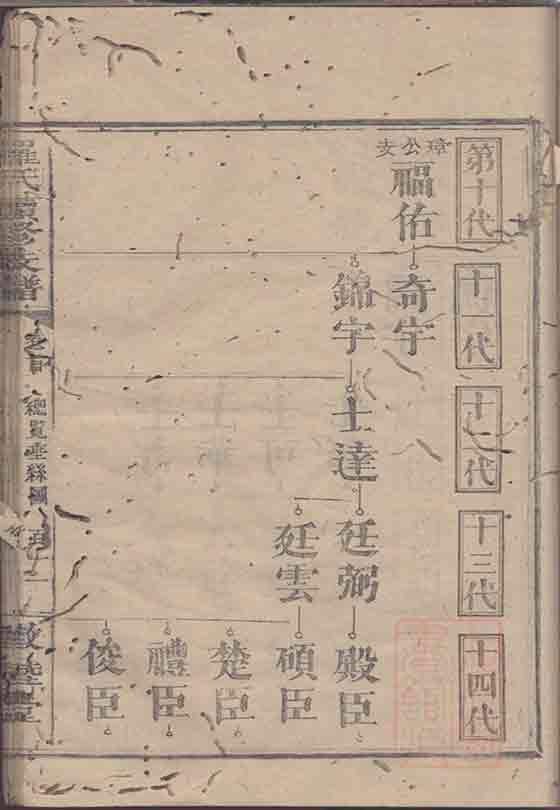 第十代
十一代
十二代
十三代
十四代
璋公支
福佑
奇宇
錦宇
士達
廷弼
廷雲
殿臣
碩臣
楚臣
體臣
俊臣
羅氏 修支譜
總覽垂絲圖